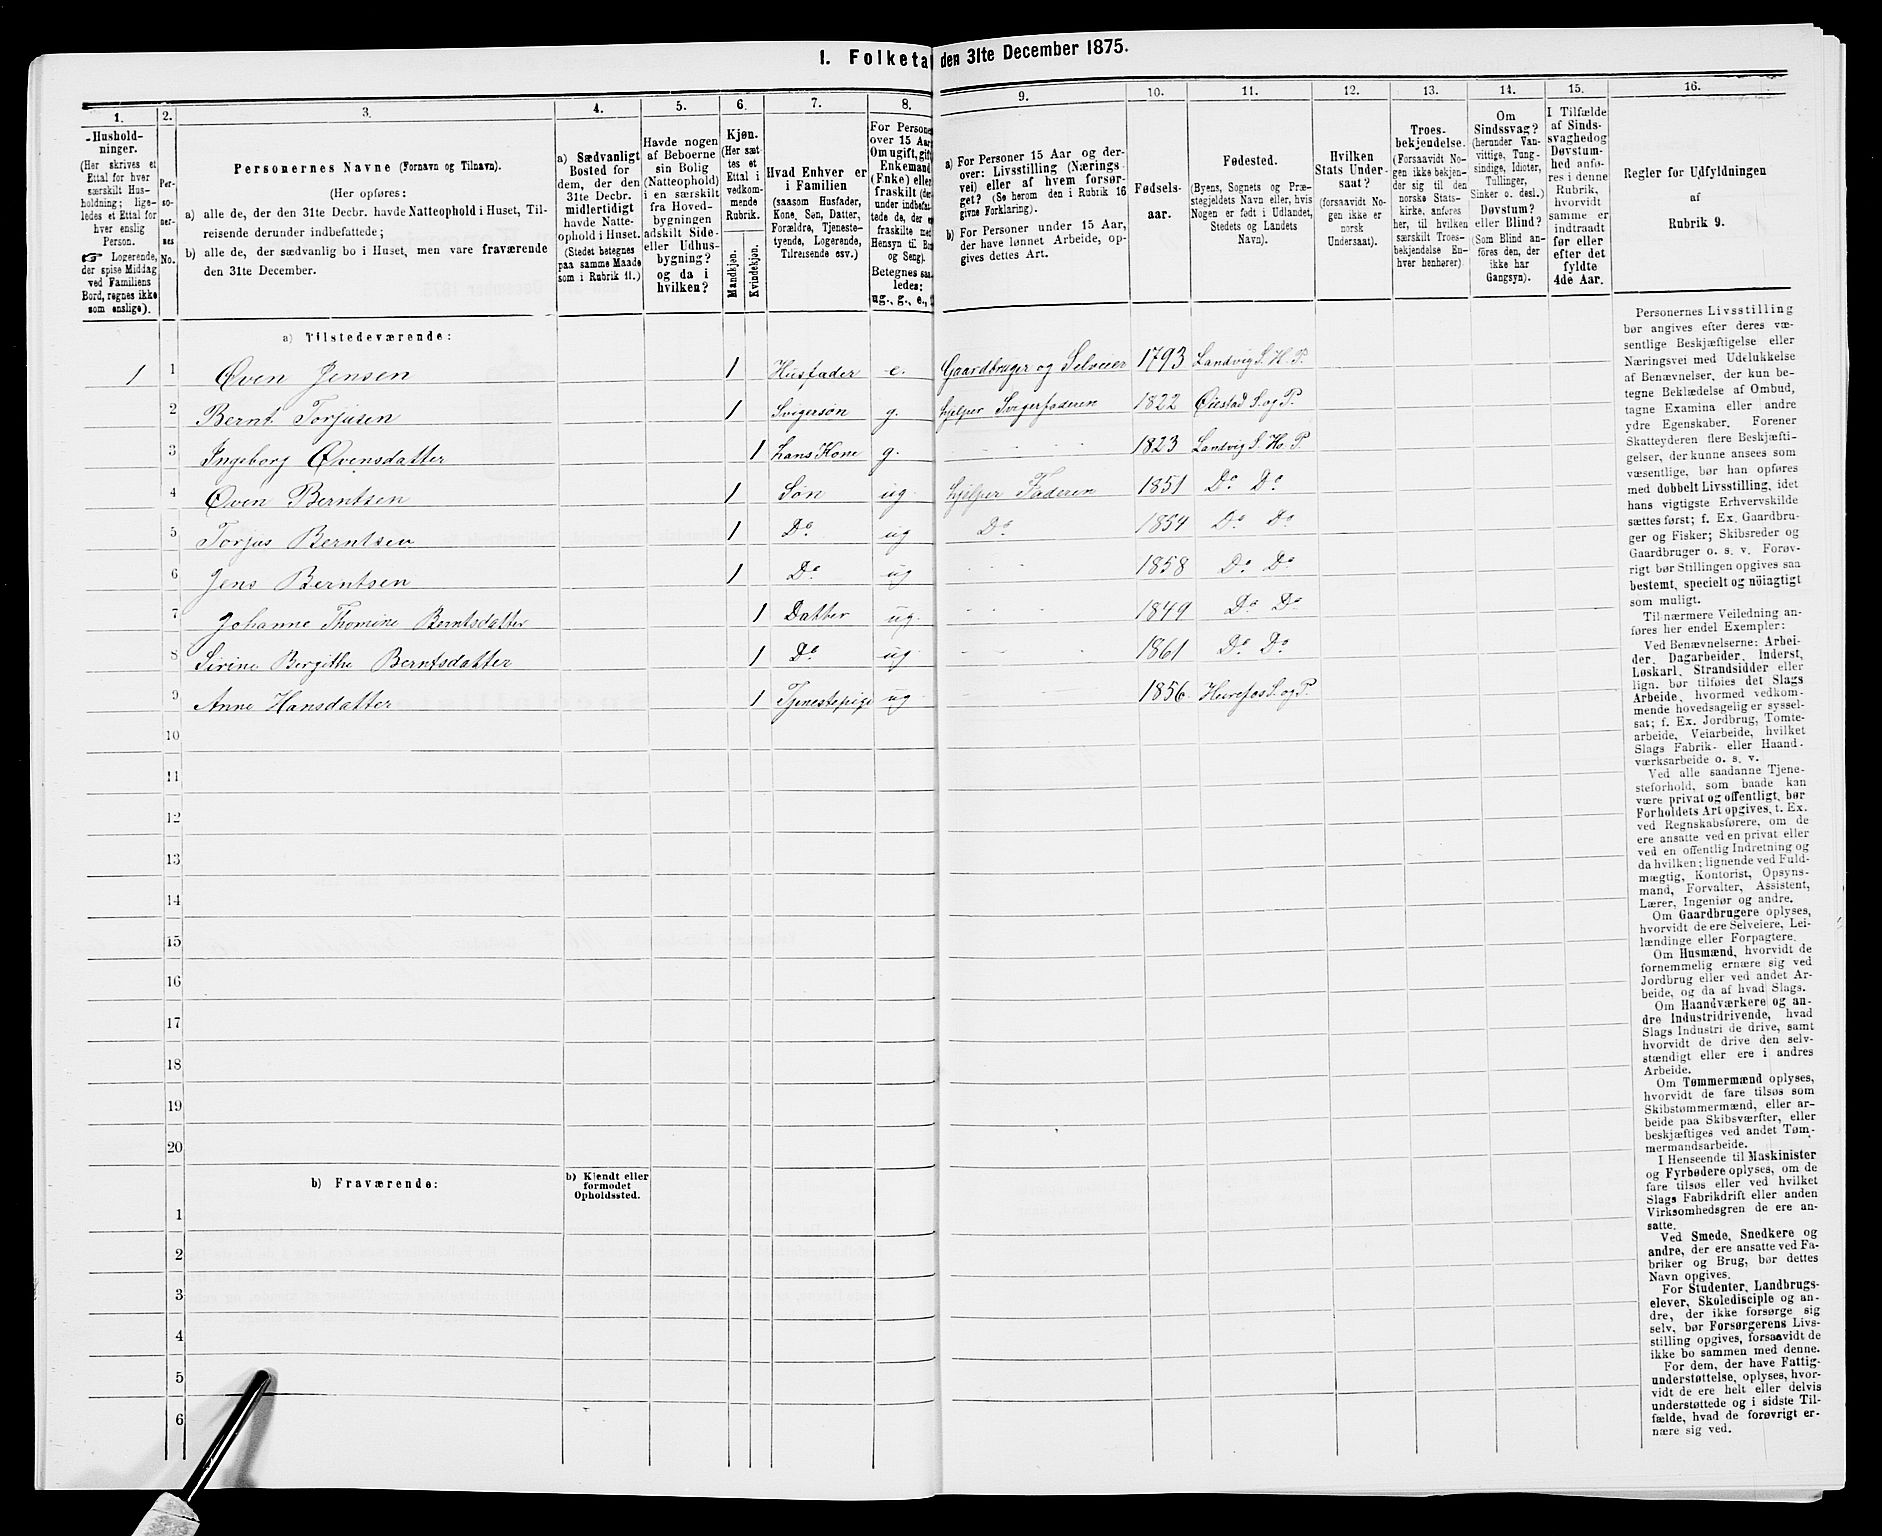 1. Folketa den 31te December 1875.
1. 2. 3. 4. 5. 6. 7. 8. 9. 10. 11. 12. 13. 14. 15. 16.
-Hushold-
ninger.
(Her skrives et
Ettal for hver
særskilt Hus-
holdning; lige-
ledes et Ettal for
hver enslig
Person.
☞ Logerende,
der spise Middag
ved Familiens
Bord, regnes ikke
som enslige).
Per-
so-
ner-
nes
No.
Personernes Navne (Fornavn og Tilnavn).
(Her opføres:
a) alle de, der den 31te Decbr. havde Natteophold i Huset, Til-
reisende derunder indbefattede;
b) alle de, der sædvanlig bo i Huset, men vare fraværende
den 31te December.
a) Sædvanligt
Bosted for
dem, der den
31te Decbr.
midlertidigt
havde Natte-
ophold i Huset.
(Stedet betegnes
paa samme Maade
som i Rubrik 11.)
Havde nogen
af Beboerne
sin Bolig
(Natteophold)
i en særskilt
fra Hoved-
bygningen
adskilt Side-
eller Udhus-
bygning?
og da i
hvilken?
Kjøn.
(Her sæt-
tes et
Ettal i
vedkom-
mende
Rubrik.
Mandkjøn.
Kvindekjøn.
Hvad Enhver er
i Familien
(saasom Husfader,
Kone, Søn, Datter,
Forældre, Tjeneste-
tyende, Logerende,
Tilreisende osv.)
For Persone
over 15 Aar
Om ugift, gift
Enkemand
(Enke) eller
fraskilt (der
under indbefat-
tede de, der e
fraskilte med
Hensyn til Bo
og Seng).
Betegnes saa
ledes:
ug., g., e.,
a) For Personer 15 Aar og der-
over: Livsstilling (Nærings-
vei) eller af hvem forsør-
get? (Se herom den i Rubrik 16
givne Forklaring).
b) For Personer under 15 Aar,
der have lønnet Arbeide, op-
gives dettes Art.
Fødsels-
aar.
Fødested.
(Byens, Sognets og Præ-
stegjeldets Navn eller, hvis
Nogen er født i Udlandet,
Stedets og Landets
Navn).
Hvilken
Stats Under-
saat?
(forsaavidt No-
gen ikke er
norsk
Undersaat).
Troes-
bekjendelse.
(Forsaavidt No-
gen ikke bekjen-
der sig til den
norske Stats-
kirke, anføres
her, til hvilken
særskilt Troes-
bekjendelse En-
hver henhører).
Om
Sindssvag?
(herunder Van-
vittige, Tung-
sindige, Idioter,
Tullinger,
Sinker o. desl.)
Døvstum?
eller Blind?
(Som Blind an-
føres den, der
ikke har
Gangsyn).
I Tilfælde
af Sinds-
svaghed og
Døvstum-
hed anfø-
res i denne
Rubrik,
hvorvidt
samme er
indtraadt
før eller
efter det
fyldte
4de Aar.
Regler for Udfyldningen
af
Rubrik 9.
a) Tilstedeværende:
1 1 Øven Jensen 1 Husfader e. Gaardbruger og Selveier 1793 Landvig S. H. P.
2 Bernt Torjusen 1 Svigersøn g. hjelper Svigerfaderen 1822 Øiestad S. og P.
3 Ingeborg Øvensdatter 1 hans Kone g. 1823 Landvig S. H. P.
4 Øven Berntsen 1 Søn ug. hjelper Faderen 1851 Do Do
5 Torjus Berntsen 1 Do. ug Do 1854 Do Do
6 Jens Berntsen 1 Do. ug 1858 Do Do
7 Johanne Thomine Berntsdatter 1 Datter ug. 1849 Do Do
8 Sirine Bergithe Berntsdatter 1 Do. ug. 1861 Do Do
9 Anne Hansdatter 1 Tjenestepige ug 1856 S. og P.
10
11
12
13
14
15
16
17
18
19
20
b) Fraværende: b) Kjendt eller
formodet
Opholdssted.
1
2
3
4
5
6
Personernes Livsstilling
bør angives efter deres væ-
sentlige Beskjæftigelse eller
Næringsvei med Udelukkelse
af Benævnelser, der kun be-
tegne Beklædelse af Ombud,
tagne Examina eller andre
ydre Egenskaber. Forener
Skatteyderen flere Beskjæfti-
gelser, der kunne ansees som
væsentlige, bør han opføres
med dobbelt Livsstilling, idet
hans vigtigste Erhvervskilde
sættes først; f. Ex. Gaardbru-
ger og Fisker; Skibsreder og
Gaardbruger o. s. v. Forøv-
rigt bør Stillingen opgives saa
bestemt, specielt og nöiagtigt
som muligt.
Til nærmere Veiledning an-
føres her endel Exempler:
Ved Benævnelserne: Arbei-
der, Dagarbeider, Inderst,
Løskarl, Strandsidder eller
lign. bør tilføies det Slags
Arbeide, hvormed vedkom-
mende hovedsagelig er syssel-
sat; f. Ex. Jordbrug, Tomte-
arbeide, Veiarbeide, hvilket
Slags Fabrik- eller Haand-
værksarbeide o. s. v.
Ved alle saadanne Tjene-
steforhold, som baade kan
være privat og offentligt, bør
Forholdets Art opgives, t. Ex.
ved Regnskabsførere, om de
ere ansatte ved en privat eller
ved en offentlig Indretning og
da hvilken; lignende ved Fuld-
mægtig, Kontorist, Opsyns-
mand, Forvalter, Assistent,
Lærer, Ingeniør og andre.
Om Gaardbrugere oplyses,
hvorvidt de ere Selveiere, Lei-
lændinge eller Forpagtere.
Om Husmænd, hvorvidt de
fornemmelig ernære sig ved
Jordbrug eller ved andet Ar-
beide, og da af hvad Slags.
Om Haandværkere og an-
dre Industridrivende, hvad
Slags Industri de drive, samt
hvorvidt de drive den selv-
stændigt eller ere i andres
Arbeide.
Om Tømmermænd oplyses,
hvorvidt de fare tilsøs som
Skibstømmermænd, eller ar-
beide paa Skibsværfter, eller
beskjæftiges ved andet Tøm-
mermandsarbeide.
I Henseende til Maskinister
og Fyrbødere oplyses, om de
fare tilsøs eller ved hvilket
Slags Fabrikdrift eller anden
Virksomhedsgren de ere an-
satte.
Ved Smede, Snedkere og
andre, der ere ansatte ved Fa-
briker og Brug, bør dettes
Navn opgives.
For Studenter, Landbrugs-
elever, Skoledisciple og an-
dre, der ikke forsørge sig
selv, bør Forsørgerens Livs-
stilling opgives, forsaavidt de
ikke bo sammen med denne.
For dem, der have Fattig-
understøttelse, oplyses, hvor-
vidt de ere helt eller delvis
understøttede og i sidste Til-
fælde, hvad de forøvrigt er-
nære sig ved.